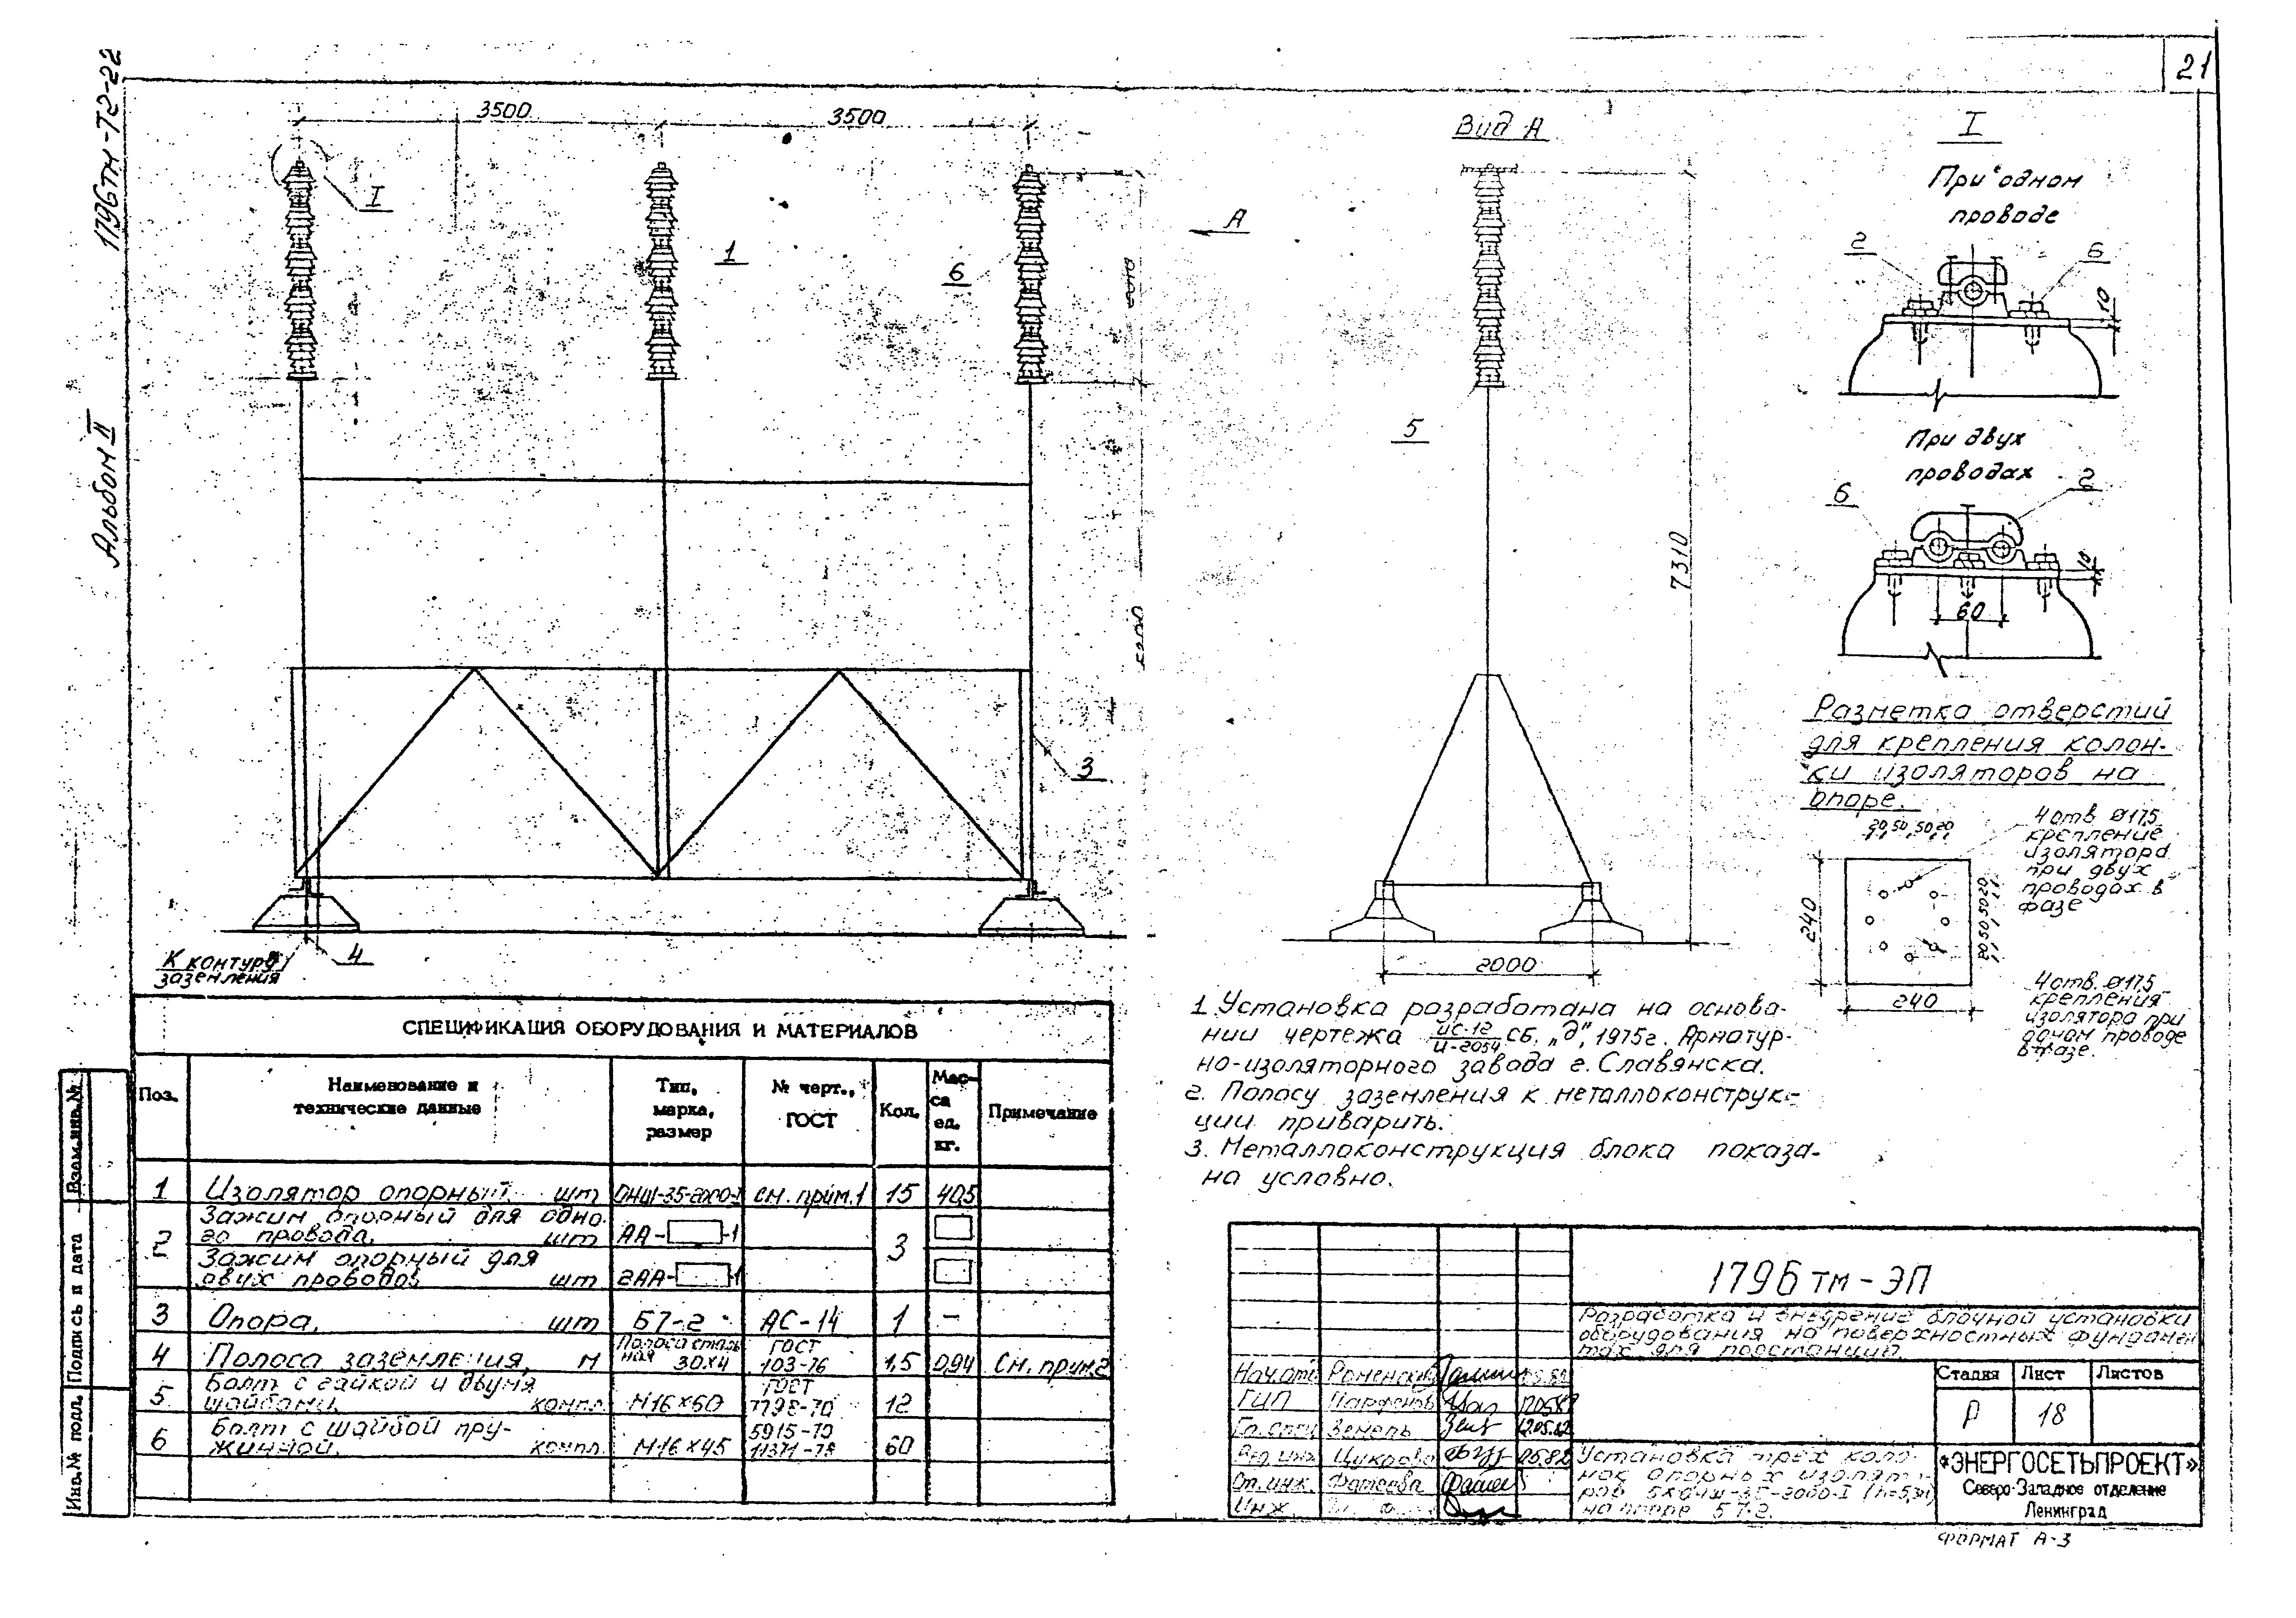 21
1796тм-Т2-22
Альбом II
3500
3500
I
1
6
А
3
4
К контуру
заземления
Вид А
5
7310
2000
I
При одном
проводе
2
6
10
При двух
проводах
6
2
10
60
Разметка отверстий
для крепления колон-
ки изоляторов на
опоре.
20 50 50 20
4 отв. ⌀17,5
крепление
изолятора
при двух
проводах в
фазе
240
20 50 50 20
240
4 отв. ⌀17,5
крепления
изолятора при
одном проводе
в фазе.
1. Установка разработана на основа-
нии чертежа ИС-12/И-2054 СБ. „д", 1975г. Арматур-
но-изоляторного завода г. Славянска.
2. Полосу заземления к металлоконструк-
ции приварить.
3. Металлоконструкция блока показа-
на условно.
СПЕЦИФИКАЦИЯ ОБОРУДОВАНИЯ И МАТЕРИАЛОВ
Поз. Наименование и технические данные Тип, марка, размер № черт., ГОСТ Кол. Мас-са ед. кг. Примечание
1 Изолятор опорный, шт ОНШ-35-2000-I см. прим.1 15 40,5
2 Зажим опорный для одно-
го провода, шт АА- -1 3
Зажим опорный для
двух проводов шт 2АА- -1
3 Опора, шт Б7-2 АС-14 1 –
4 Полоса заземления, м Полоса сталь-ная 30×4 ГОСТ 103-76 1,5 0,94 См. прим.2
5 Болт с гайкой и двумя
шайбами, компл. М16×60 ГОСТ 7798-70 12
6 Болт с шайбой пру-
жинной, компл. М16×45 5915-70 11371-78 60
Взам.инв.№
Подпись и дата
Инв.№ подл.
1796 тм-ЭП
Разработка и внедрение блочной установки
оборудования на поверхностных фундамен
тах для подстанций.
Нач.отд Роменский
ГИП
Гл.спец Земель 12.05.82
Вед.инж Цикрова 05.82
Ст.инж. Фатеева
Инж.
Стадия Лист Листов
Р 18
Установка трех коло-
нок опорных изолято-
ров 5ХОНШ-35-2000-I
на опоре Б7-2.
«ЭНЕРГОСЕТЬПРОЕКТ»
Северо-Западное отделение
Ленинград
ФОРМАТ А-3